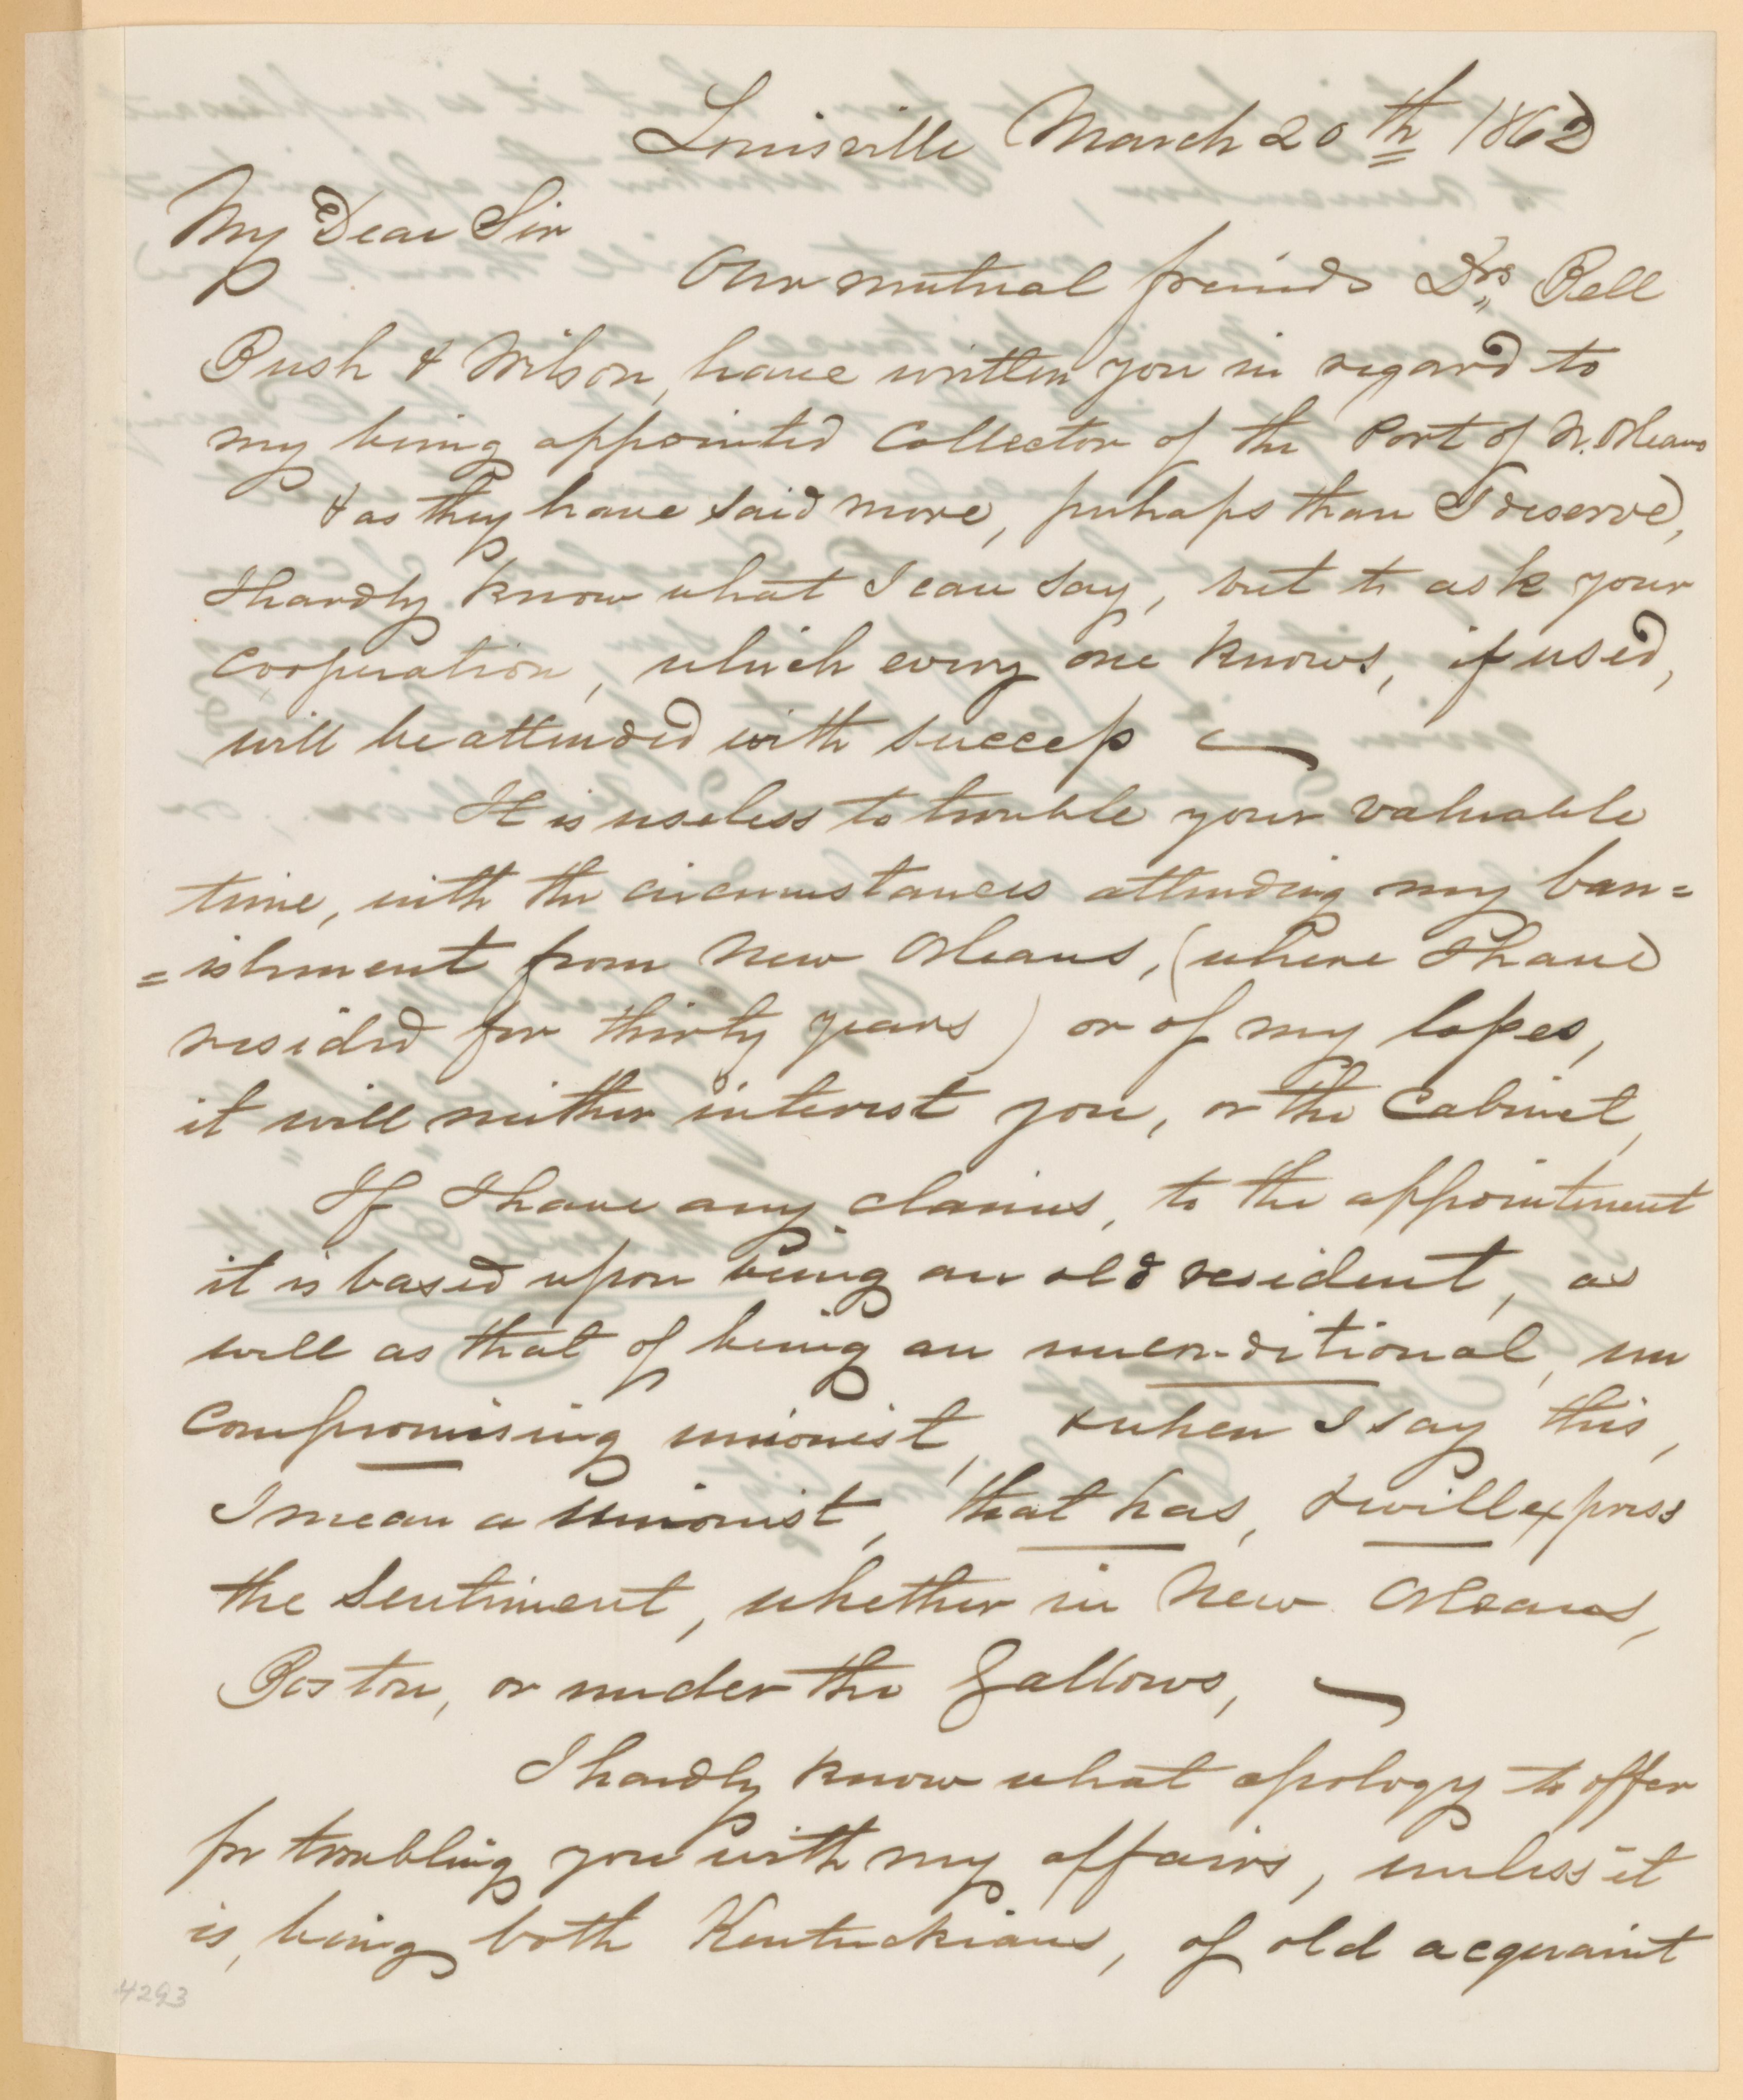 Louisville March 20th 1862
My Dear Sir
Our mutual friends Drs Bell
Bush & Wilson, have written you in regard to
my being appointed Collector of the Port of N. Orleans
& as they have said more, perhaps than I deserve,
I hardly know what I can say, but to ask your
cooperation, which every one knows, if used,
will be attended with success
It is useless to trouble your valuable
time, with the circumstances attending my ban=
=ishment from New Orleans, (where I have
resided for thirty years) or of my losses,
it will neither interest you, or the Cabinet,
If I have any claims, to the appointment
it is based upon being an old resident, as
well as that of being an unconditional, un
compromising unionist, & when I say this,
I mean a unionist, that has, & will express
the sentiment, whether in New Orleans,
Boston, or under the Gallows,
I hardly know what apology to offer
for troubling you with my affairs, unless it
is, being both Kentuckians, of old acquaint
4293